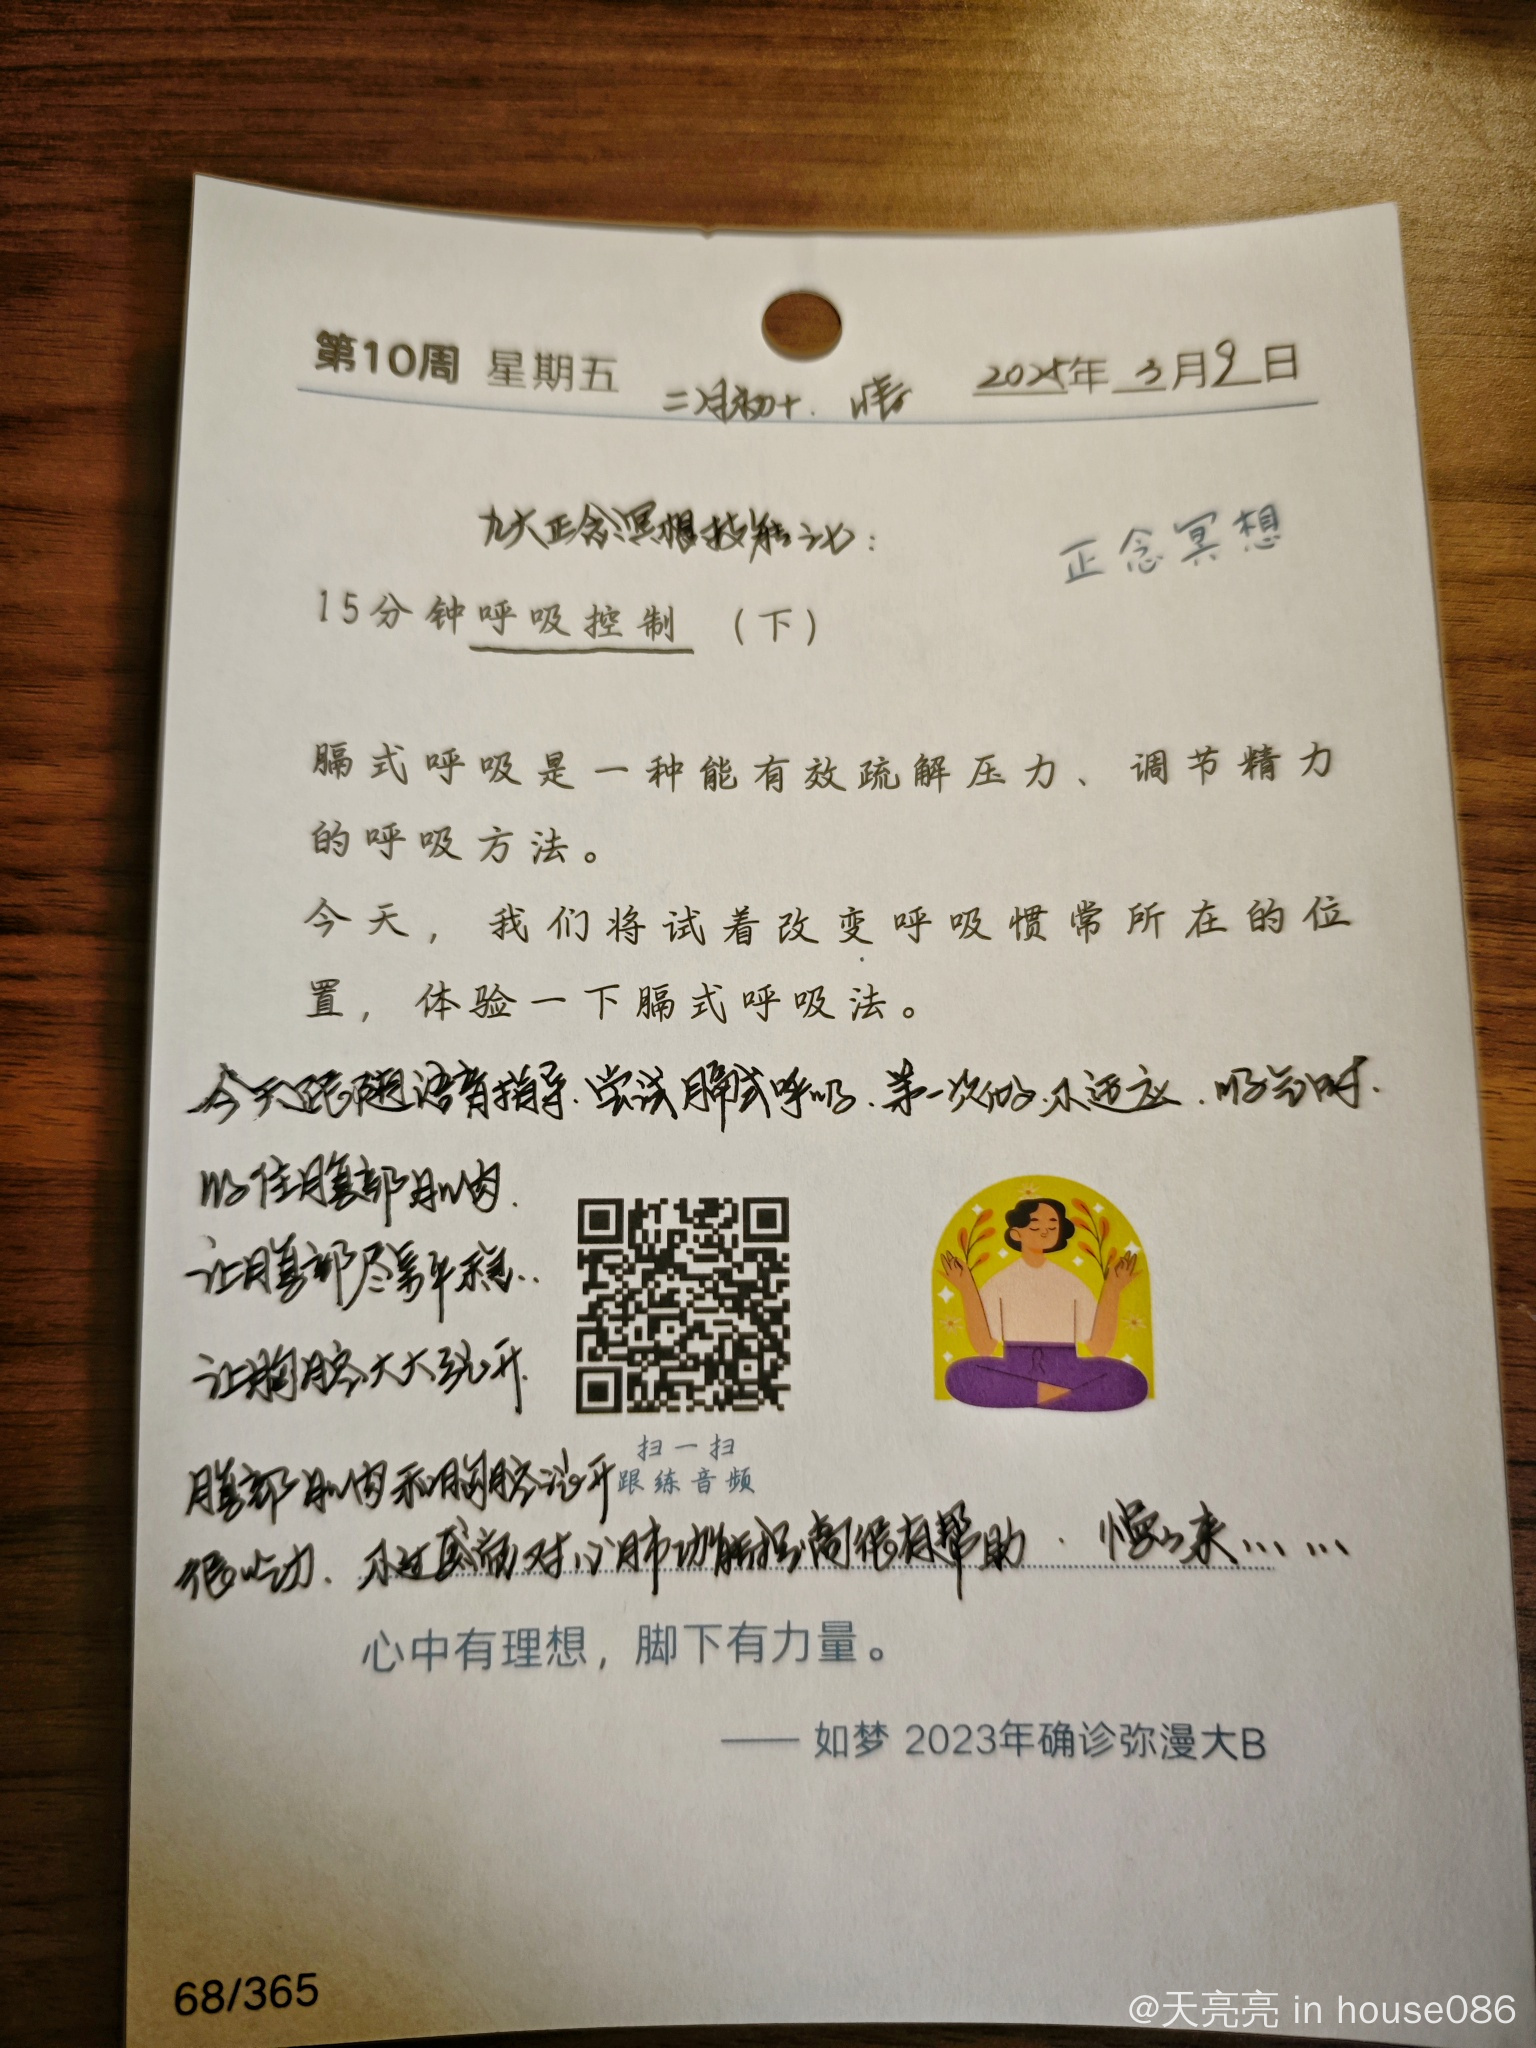 第10周 星期五
二月初十. 晴
2025年 3月9日
九大正念冥想技能之七:
正念冥想
15分钟呼吸控制 (下)
膈式呼吸是一种能有效疏解压力、调节精力
的呼吸方法。
今天, 我们将试着改变呼吸惯常所在的位
置, 体验一下膈式呼吸法。
今天跟随语音指导.尝试膈式呼吸.第一次做.不适应.吸气时.
吸住腹部肌肉.
让腹部尽量平稳..
让胸腔大大张开.
腹部肌肉和胸腔 开
很吃力. 不过 对心肺功能提高很有帮助. 慢慢来……
扫一扫
跟练音频
心中有理想, 脚下有力量。
—— 如梦 2023年确诊弥漫大B
68/365
@天亮亮 in house086